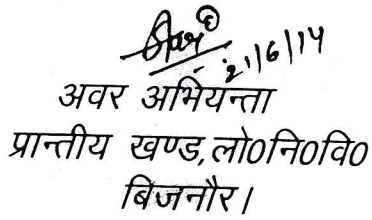 21/6/14
अवर अभियन्ता
प्रान्तीय खण्ड,लो०नि०वि०
बिजनौर।